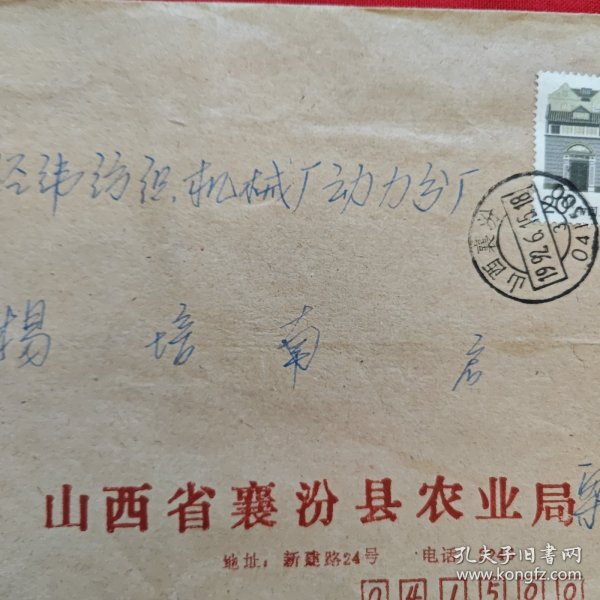 经纬纺织机械厂动力分厂
山西襄汾
1992.6.15.18
041500
杨培南启
山西省襄汾县农业局
地址：新建路24号 电话：24
041500
孔夫子旧书网
www.kongfz.com